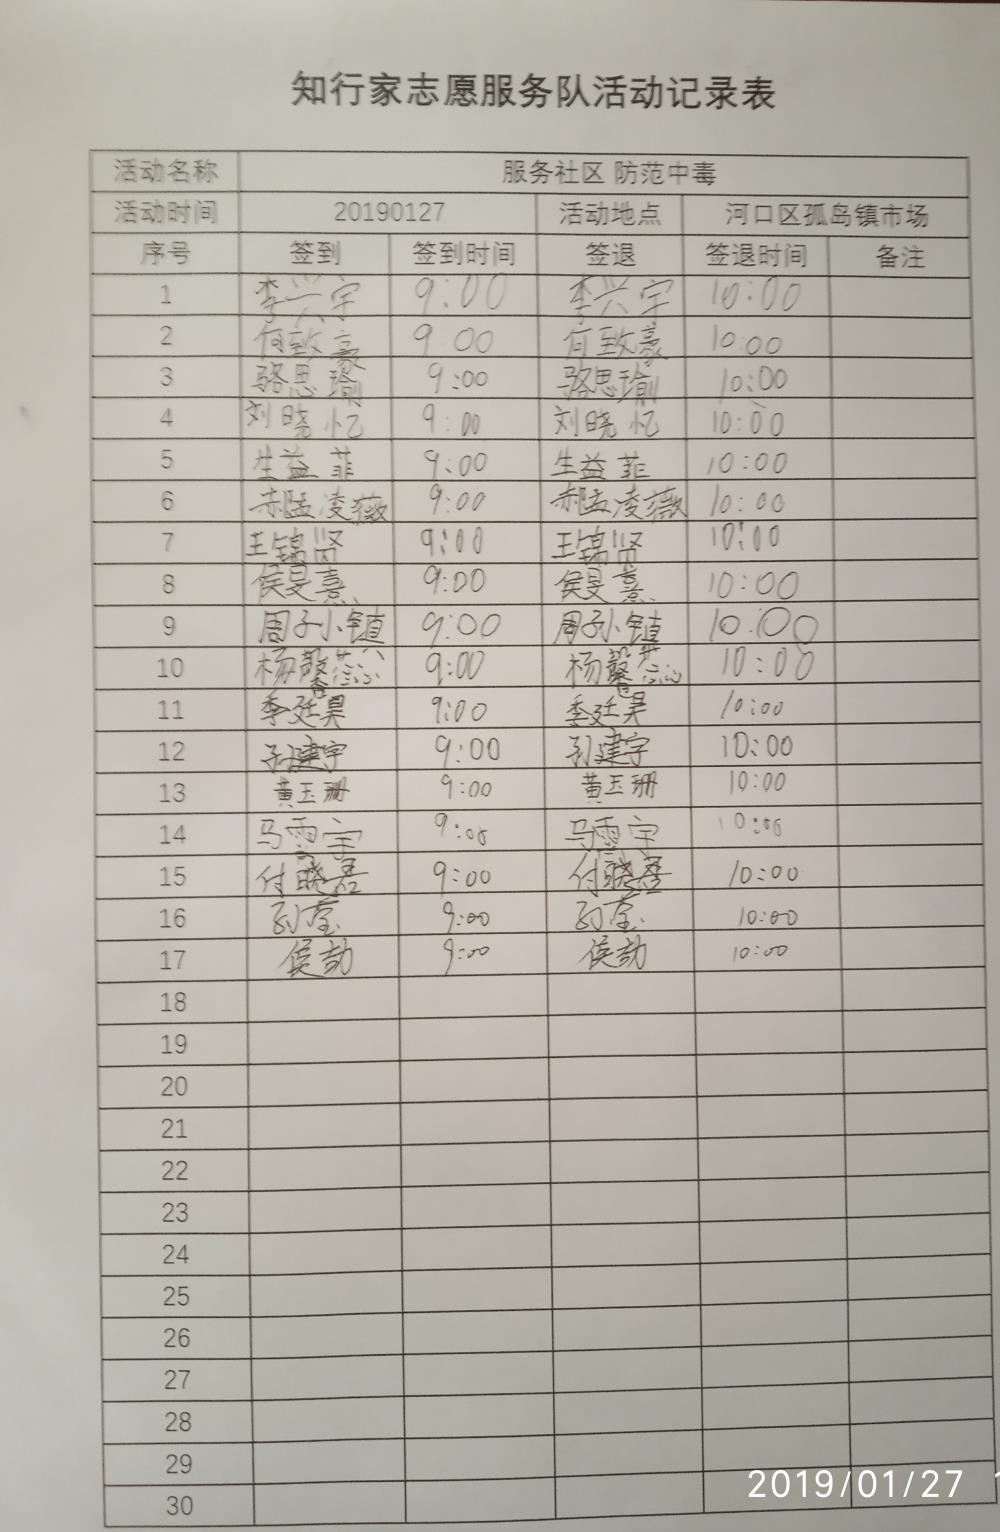 知行家志愿服务队活动记录表
活动名称 服务社区 防范中毒
活动时间 20190127 活动地点 河口区孤岛镇市场
序号 签到 签到时间 签退 签退时间 备注
1 李兴宇 9:00 李兴宇 10:00
2 何致豪 9:00 何致豪 10:00
3 骆思瑜 9:00 骆思瑜 10:00
4 刘晓忆 9:00 刘晓忆 10:00
5 生益菲 9:00 生益菲 10:00
6 赤孟凌薇 9:00 赤孟凌薇 10:00
7 王锦贤 9:00 王锦贤 10:00
8 侯旻熹 9:00 侯旻熹 10:00
9 周子小镇 9:00 周子小镇 10:00
10 杨馨蕊 9:00 杨馨蕊 10:00
11 季廷昊 9:00 季廷昊 10:00
12 孙建宇 9:00 孙建宇 10:00
13 黄玉珊 9:00 黄玉珊 10:00
14 马雪宁 9:00 马雪宁 10:00
15 付晓 9:00 付晓 10:00
16 孙莹 9:00 孙莹 10:00
17 侯劼 9:00 侯劼 10:00
18
19
20
21
22
23
24
25
26
27
28
29
30
2019/01/27